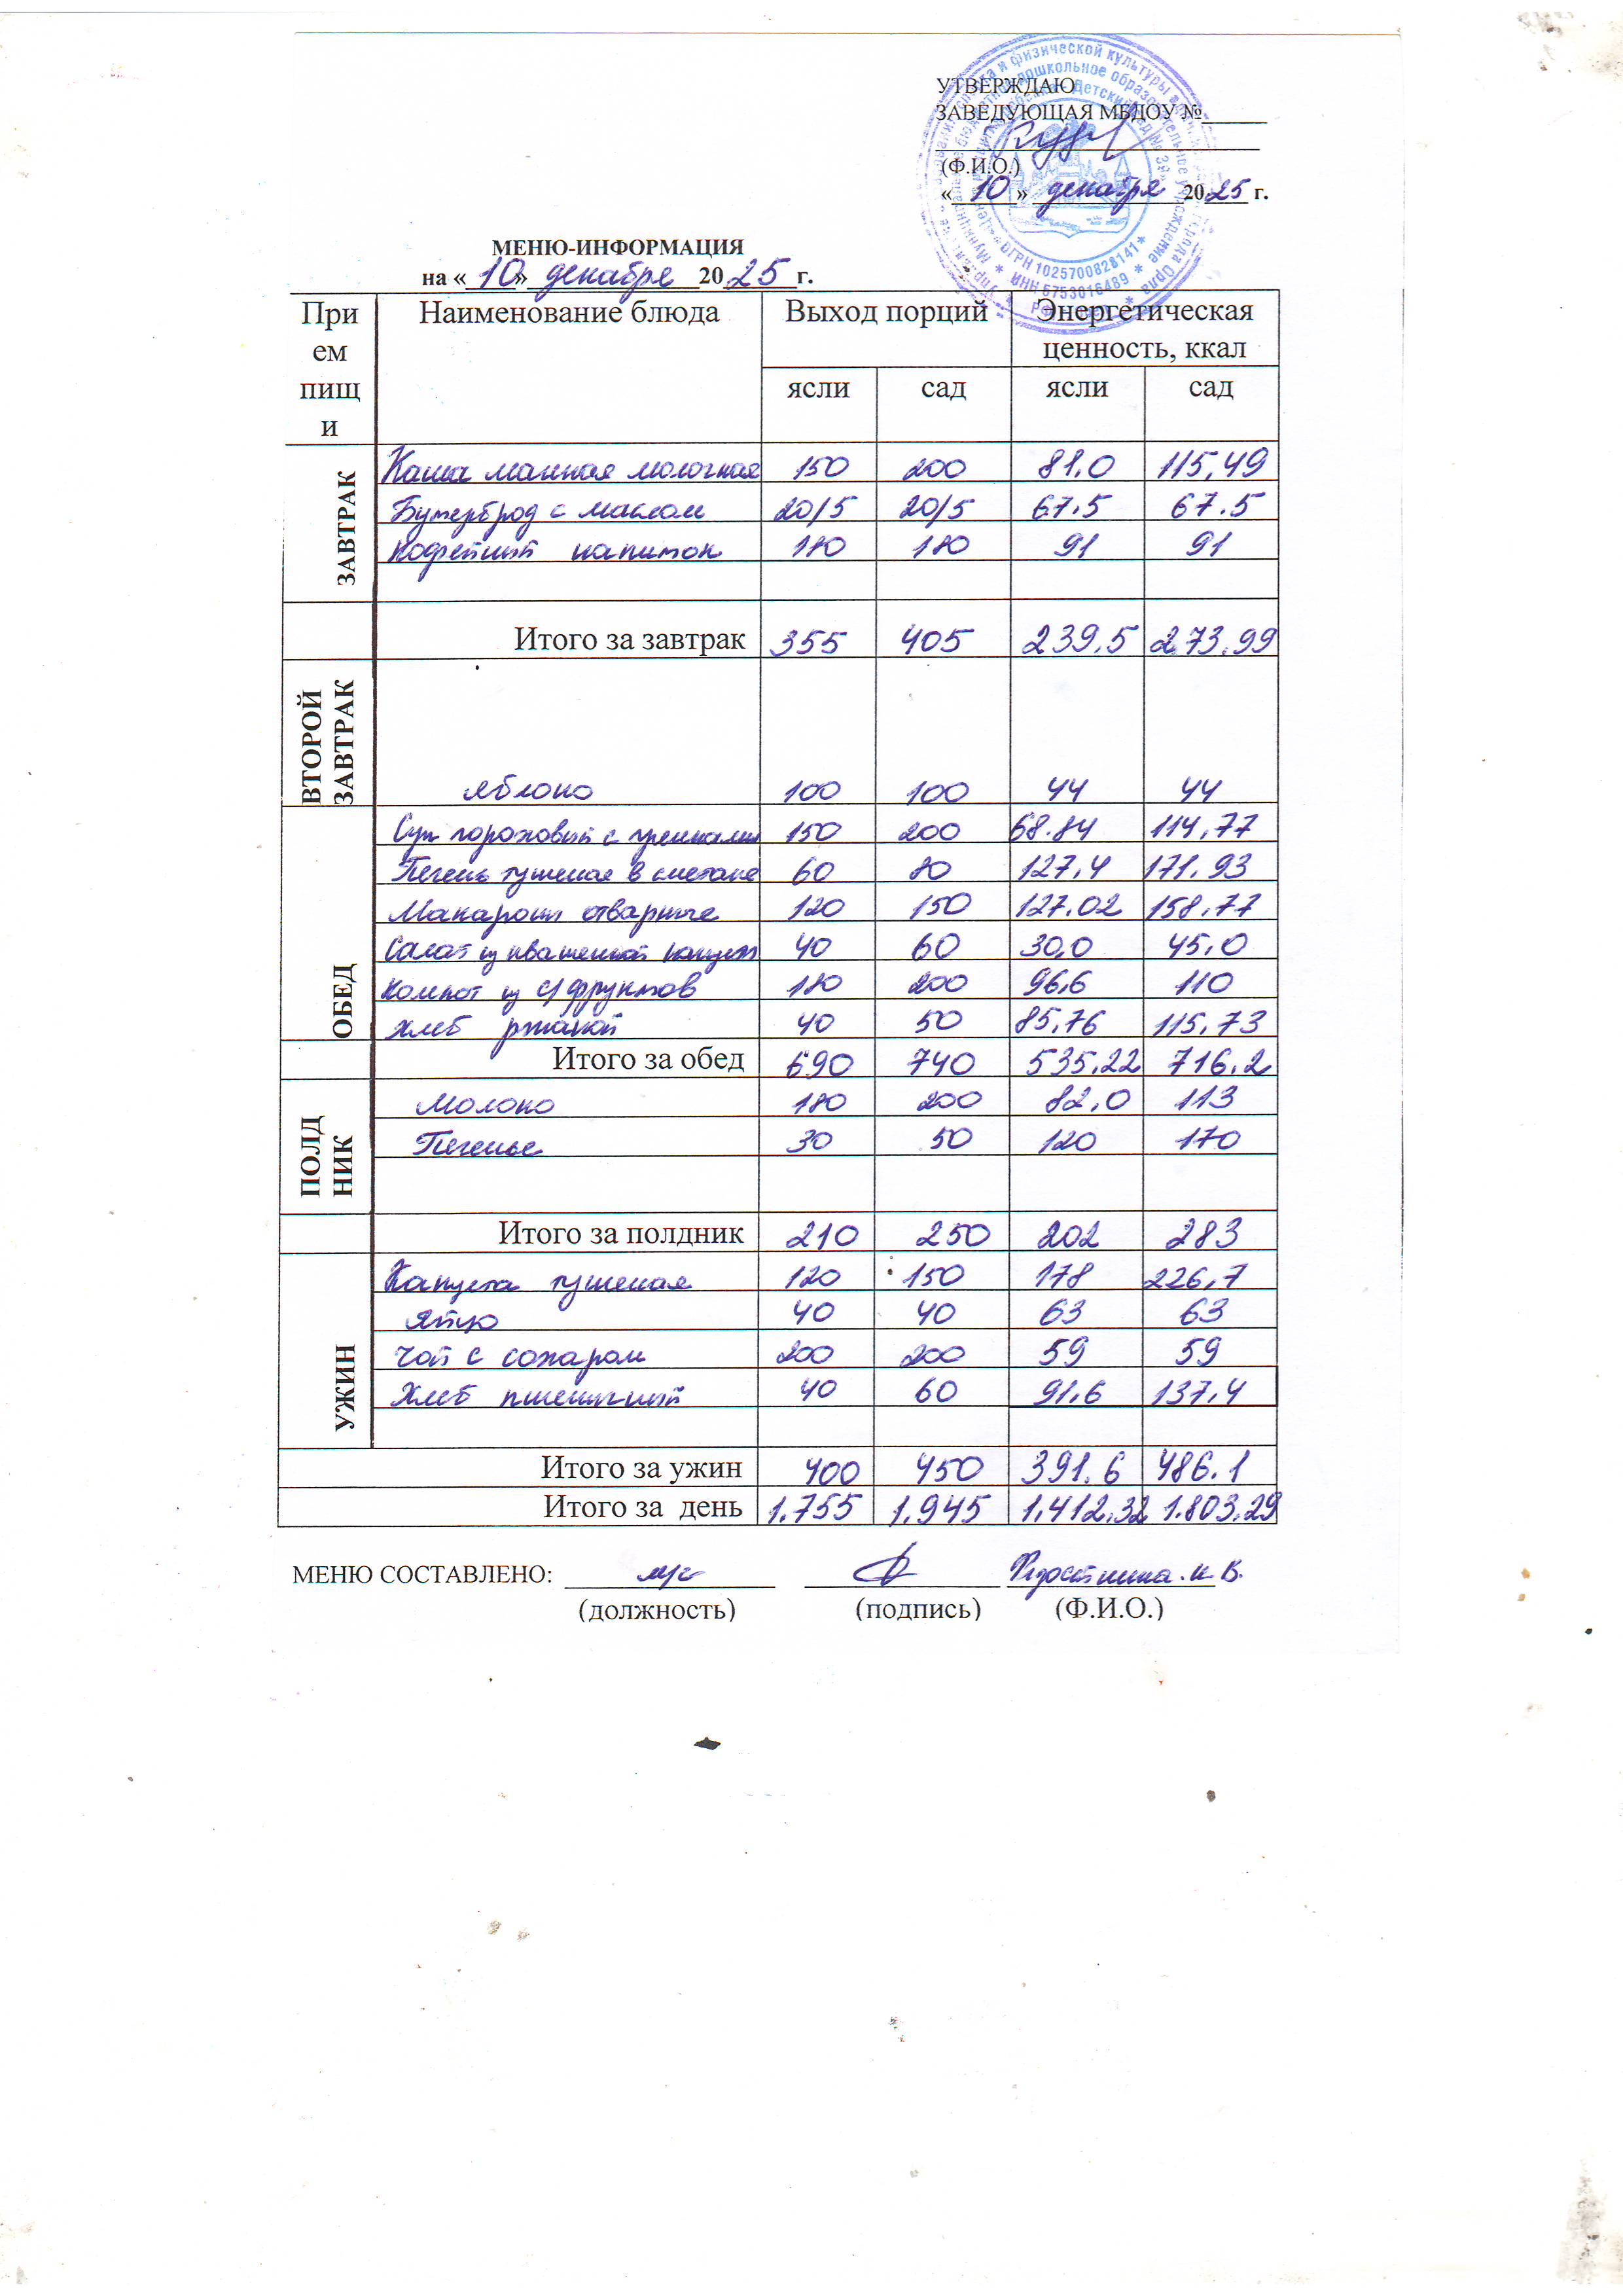 УТВЕРЖДАЮ
ЗАВЕДУЮЩАЯ МБДОУ №
(Ф.И.О.)
«10» декабря 2025 г.
ОГРН 1025700828141 *
* ИНН 5753016489 *
МЕНЮ-ИНФОРМАЦИЯ
на «10» декабря 2025 г.
При ем пищ и Наименование блюда Выход порций Энергетическая ценность, ккал
ясли сад ясли сад
ЗАВТРАК
Каша манная молочная 150 200 81,0 115,49
Бутерброд с маслом 20/5 20/5 67.5 67.5
Кофейный напиток 180 180 91 91
Итого за завтрак 355 405 239,5 273,99
ВТОРОЙ ЗАВТРАК
яблоко 100 100 44 44
ОБЕД
Суп гороховый с гренками 150 200 68.84 114,77
Печень тушеная в сметане 60 80 127,4 171,93
Макароны отварные 120 150 127,02 158,77
Салат из квашеной капусты 40 60 30,0 45,0
Компот из с/фруктов 180 200 96,6 110
Хлеб ржаной 40 50 85,76 115,73
Итого за обед 690 740 535,22 716,2
ПОЛД НИК
Молоко 180 200 82,0 113
Печенье 30 50 120 170
Итого за полдник 210 250 202 283
УЖИН
Капуста тушеная 120 150 178 226,7
Яйцо 40 40 63 63
Чай с сахаром 200 200 59 59
Хлеб пшеничный 40 60 91,6 137,4
Итого за ужин 400 450 391,6 486.1
Итого за день 1.755 1.945 1.412,32 1.803,29
МЕНЮ СОСТАВЛЕНО: м/с
(должность) (подпись) (Ф.И.О.)